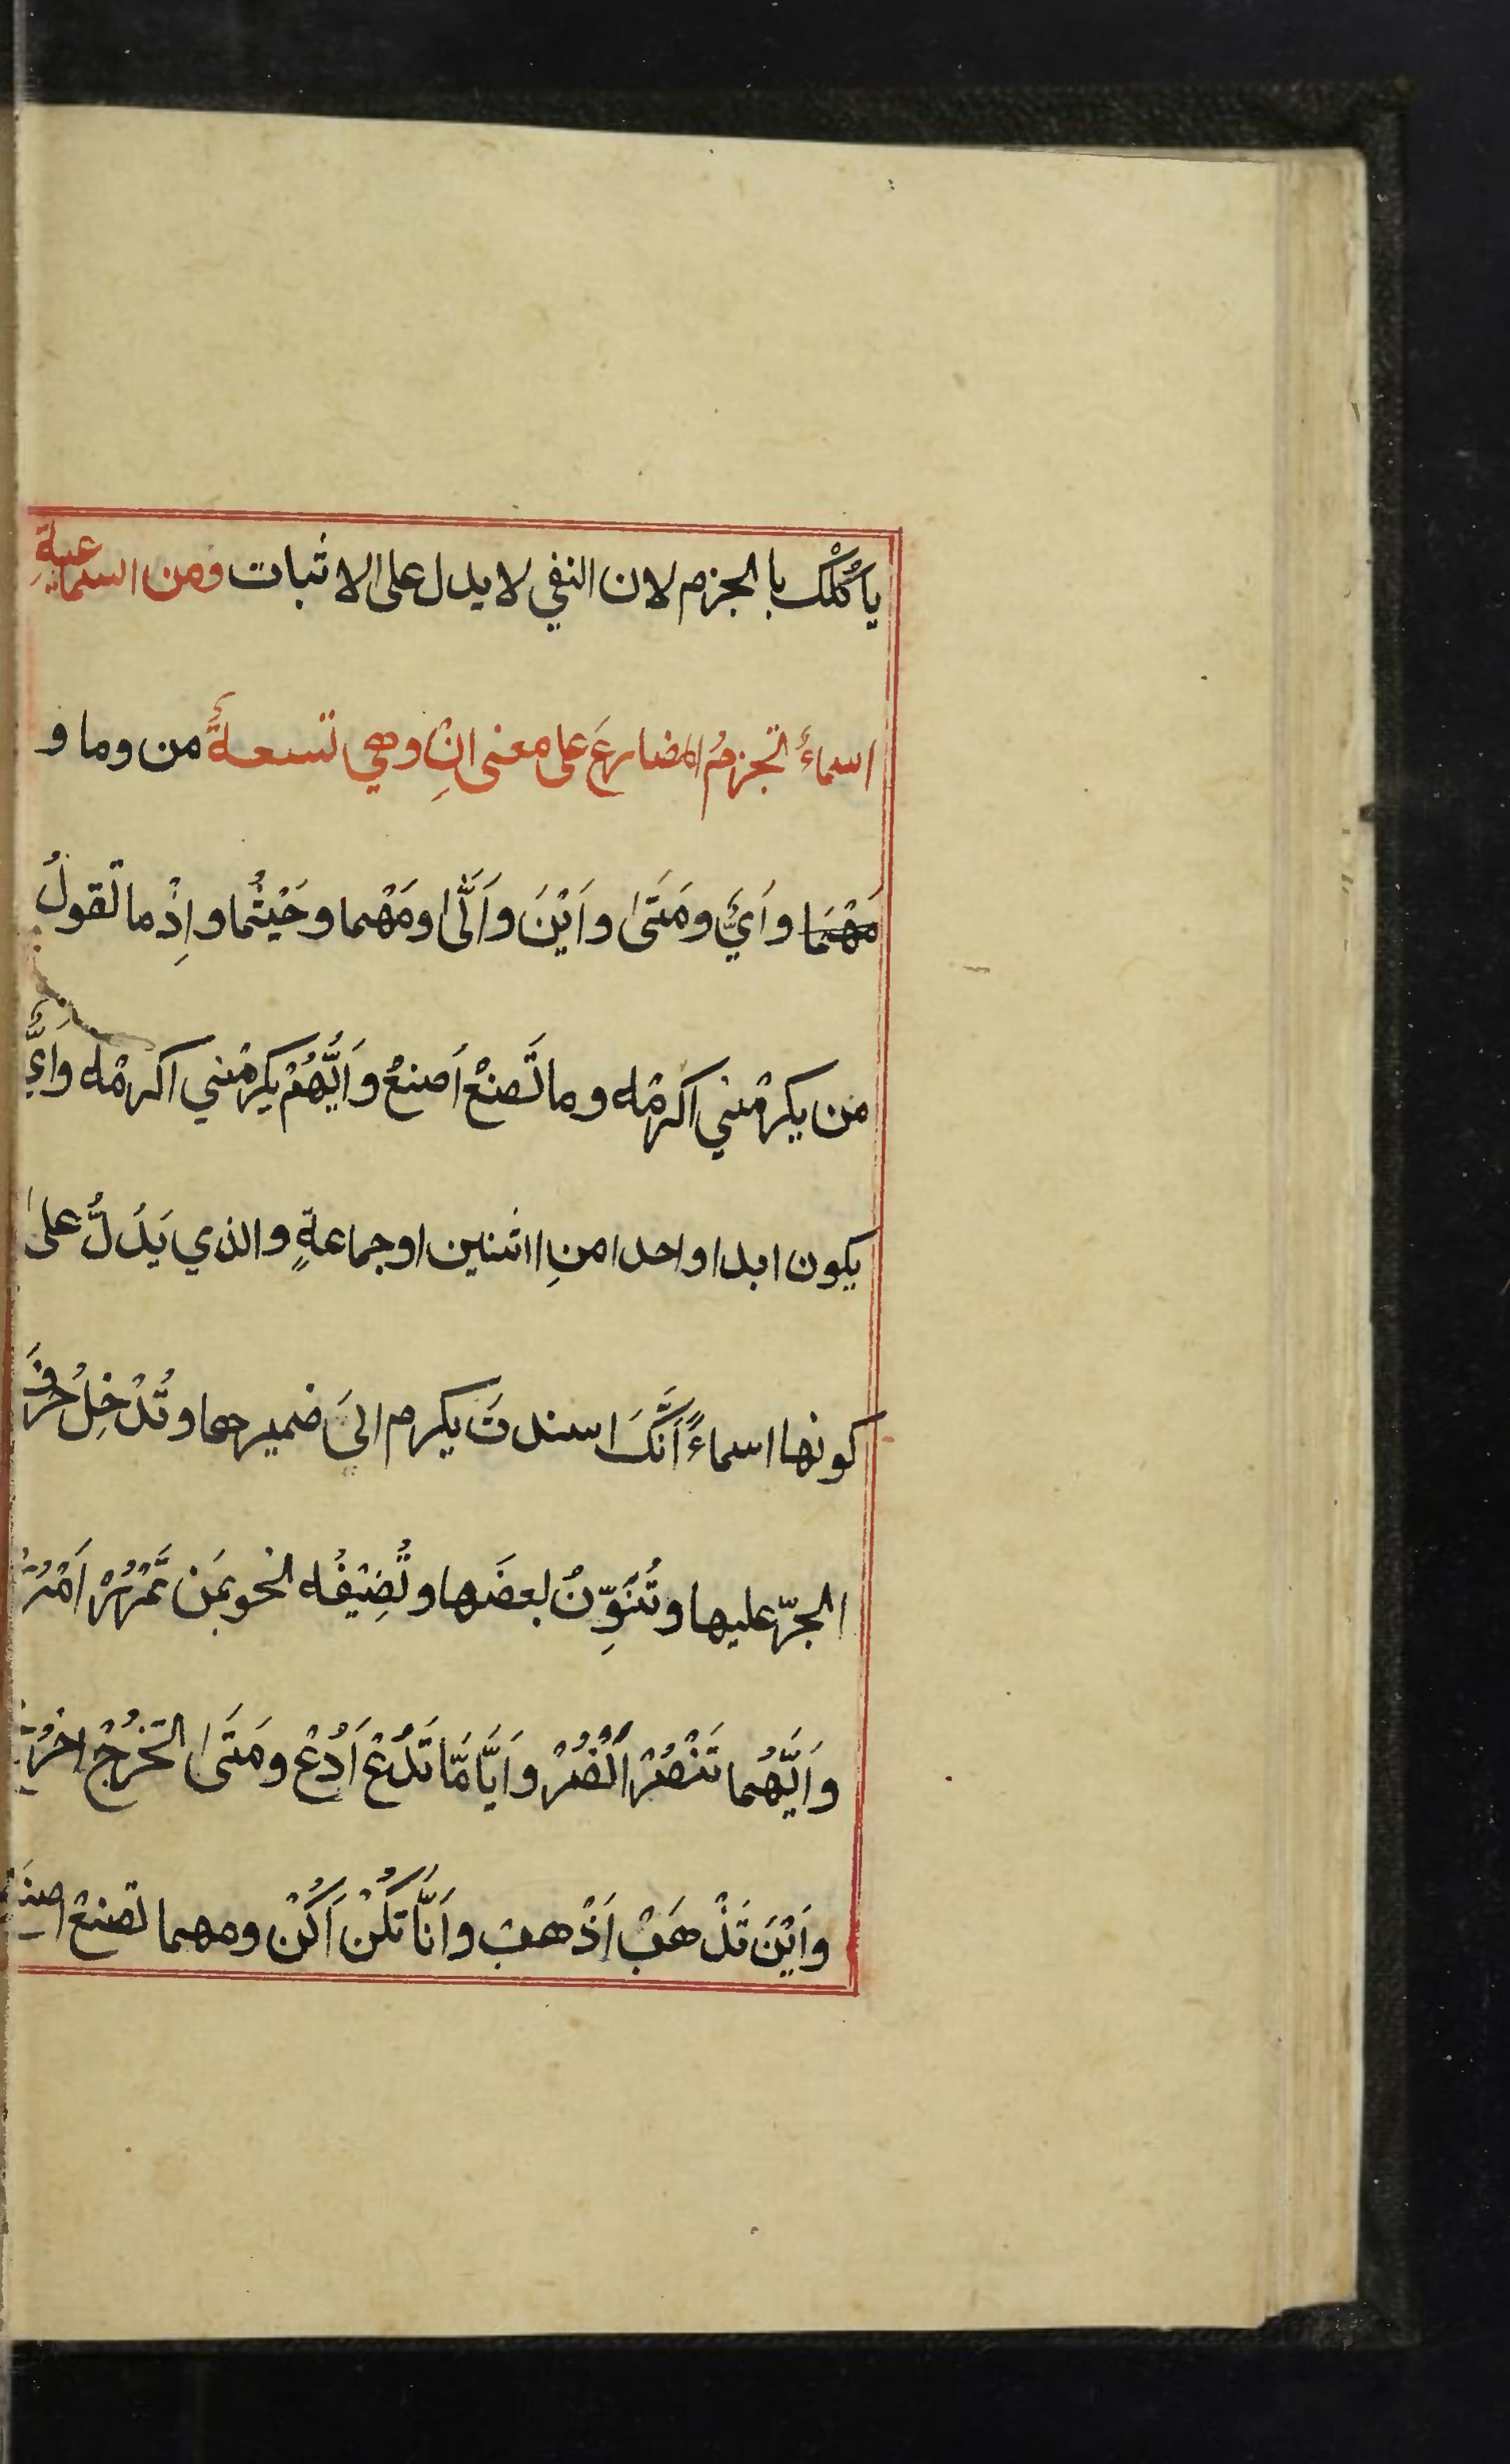 يأكُلْك بالجزم لان النفي لا يدل على الاثبات ومن السماعيةِ
اسماءُ تجزمُ المضارعَ على معنى انِْ وهي تسعةُ من وما و
مَهْمَا وأَيُّ ومَتَىٰ وأَيْنَ وأَنَّىٰ ومَهْما وحَيْثُما وإِذْما تقولُ
من يكرمْني اكرمْه وما تَصنعْ أَصنعْ وأَيُّهُمْ يكرمْني اكرمْه وأَيُّ
يكون ابدا واحدا منِ اثنين او جماعةٍ والذي يَدُلُّ على
كونها اسماءً أَنَّكَ اسندتَ يكرم الىَ ضميرها وتُدْخِلُ حرفَ
الجرّ عليها وتُنَوِّنُ بعضَها وتُضِيْفُه نحو بمَن تَمْرُرْ أَمْرُرْ
وأَيَّهُما تَنْصُرْ أَنْصُرْ وأَيَّامَّا تَدْعُ أَدْعُ ومَتَىٰ تَخْرُجْ اخرُجْ
وأَيْنَ تَذْهَبْ أَذْهبْ وأَنَّا تَكُنْ أَكُنْ ومهما تصنعْ اصنَعْ